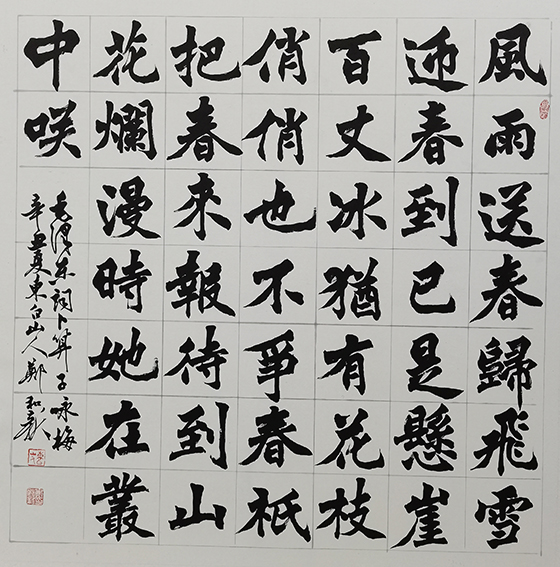 風雨送春歸飛雪
迎春到已是懸崖
百丈冰猶有花枝
俏俏也不爭春祇
把春來報待到山
花爛漫時她在叢
中咲
毛泽东詞卜算子咏梅
辛丑夏東白山人鄭和